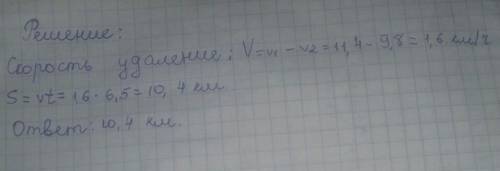 Решение:
Скорость удаление: V=v1-v2=11,4-9,8=1,6 км/ч
S=vt=1,6·6,5=10,4 км
Ответ: 10,4 км.